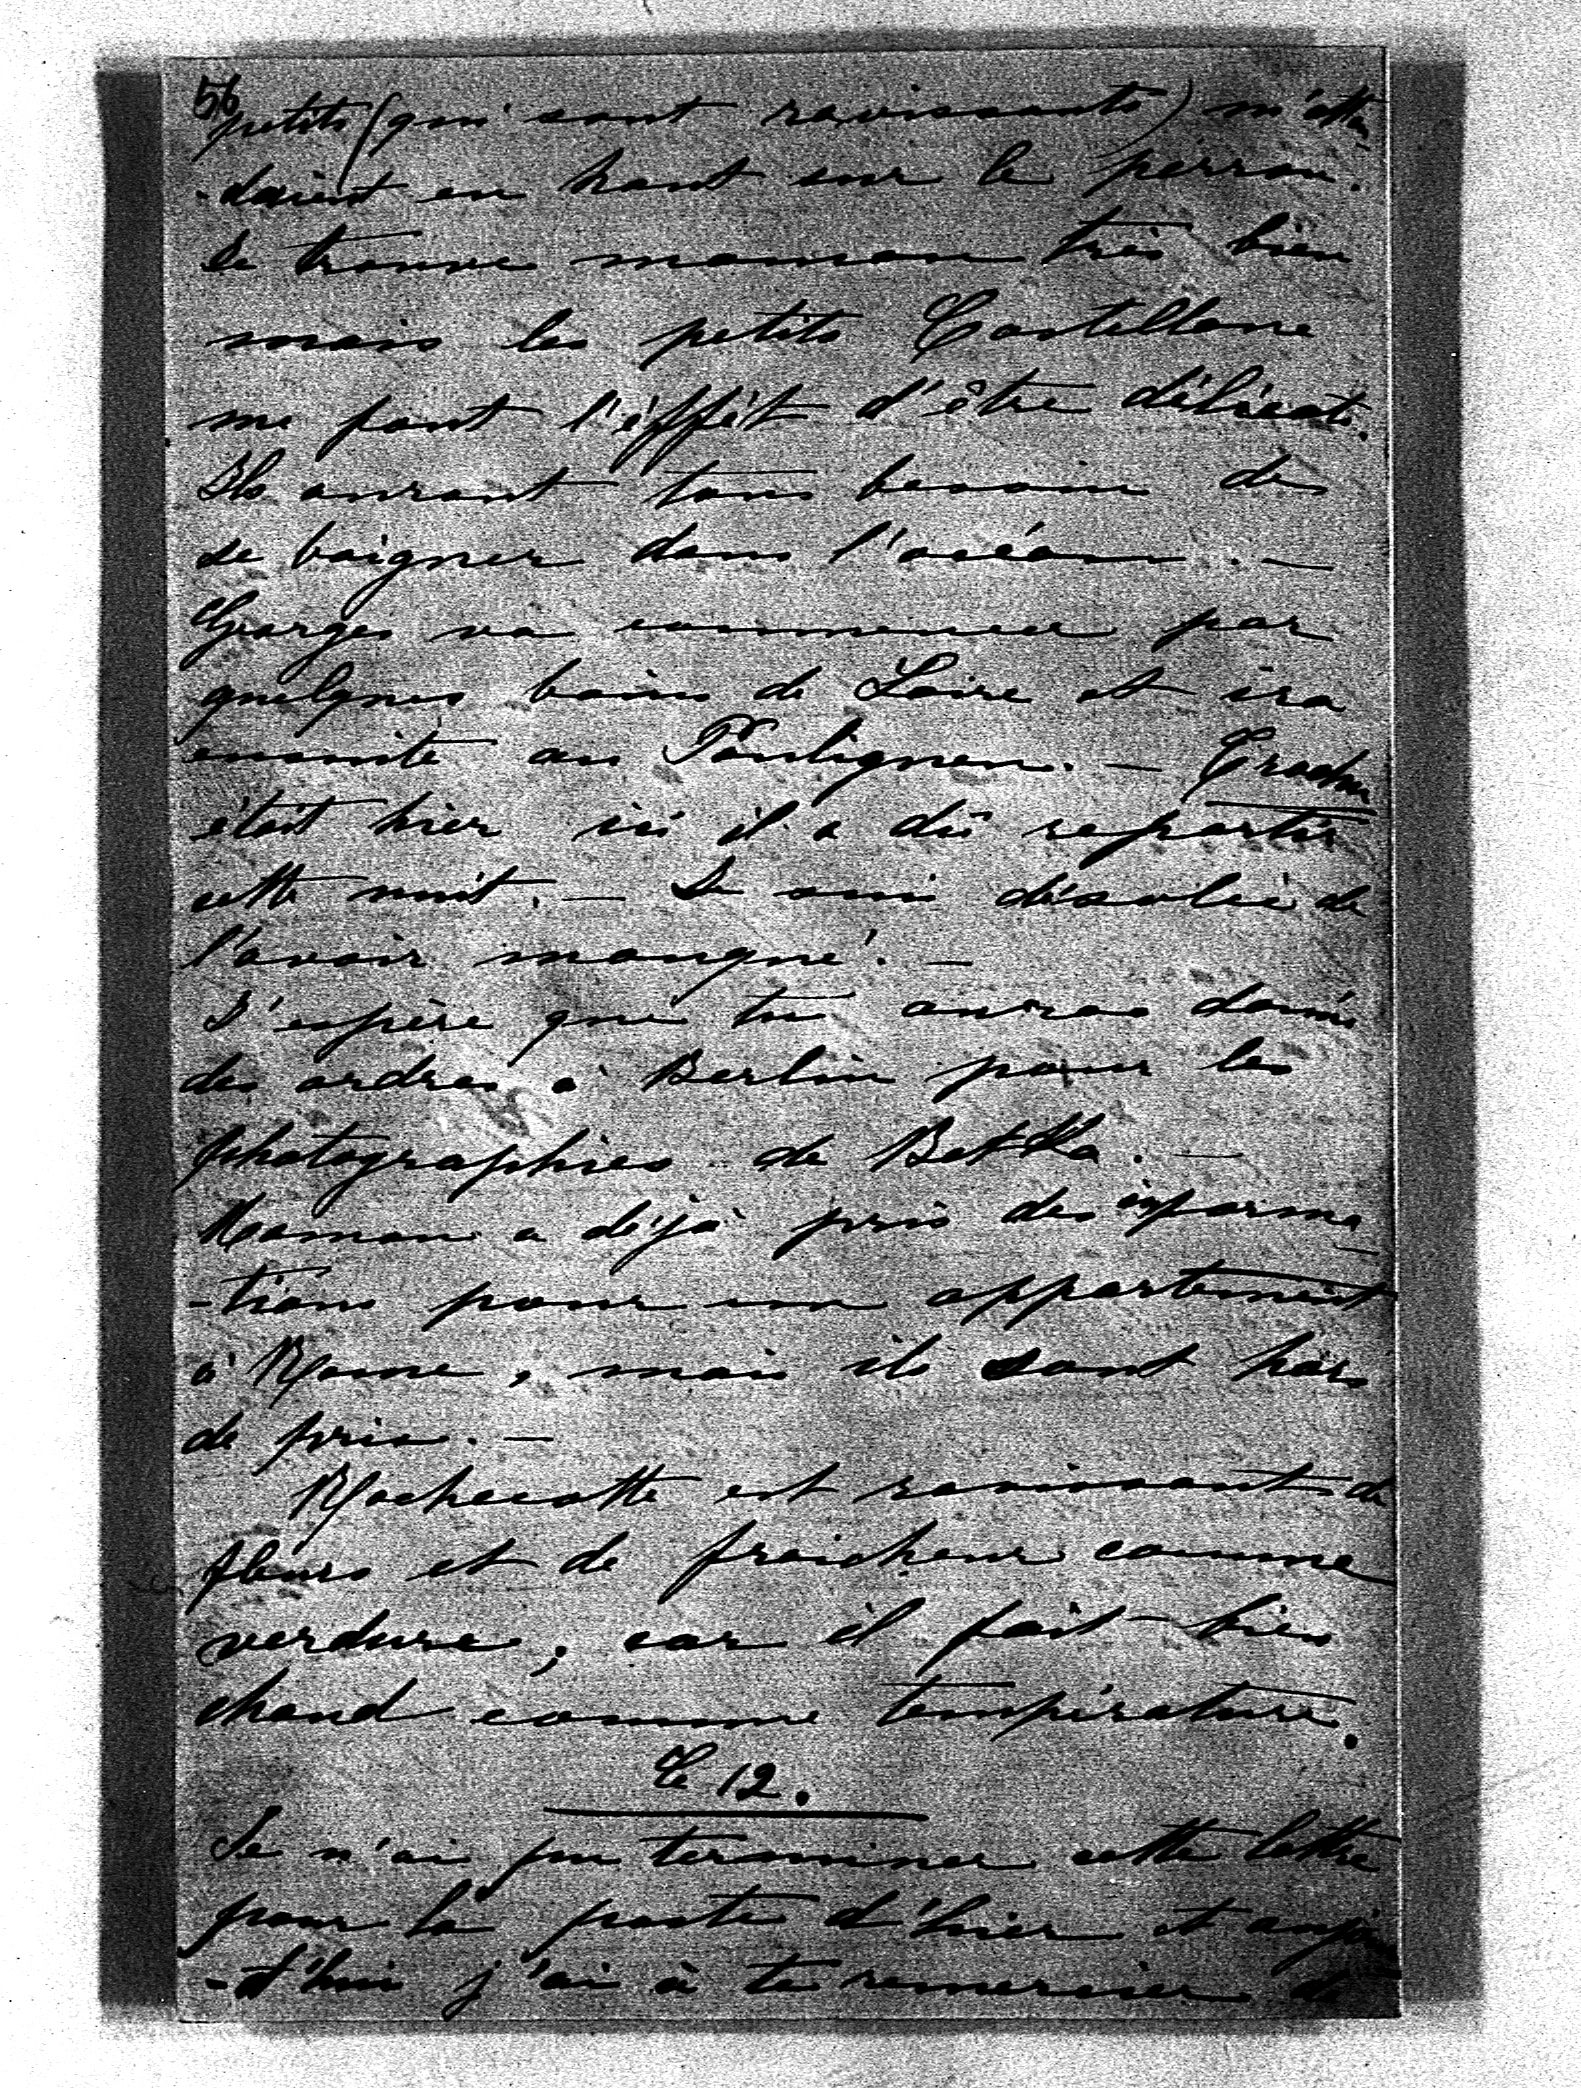 56
petits (qui sont ravissants) m'atten
-daient en haut sur le perron.
Je trouve maman très bien
mais les petits Castellane
me font l'éffét d'être délicats.
Ils auront tous besoin de
se baigner dans l'océan. —
Georges va commencer par
quelques bains de Loire et ira
ensuite au Pouliguen. —
était hier ici il a dû repartir
cette nuit. — Je suis désolée de
l'avoir manqué. —
J'espère que tu auras donné
des ordres à Berlin pour les
photographies de Betka. —
Maman a déjà pris des informa
-tions pour un appartement
à Rome, mais ils sont hors
de prix. —
Rochecotte est ravissant de
fleurs et de fraicheur comme
verdure, car il fait bien
chaud comme température.
Le 12.
Je n'ai pu terminer cette lettre
pour la poste d'hier et aujour
-d'hui j'ai à te remercier de